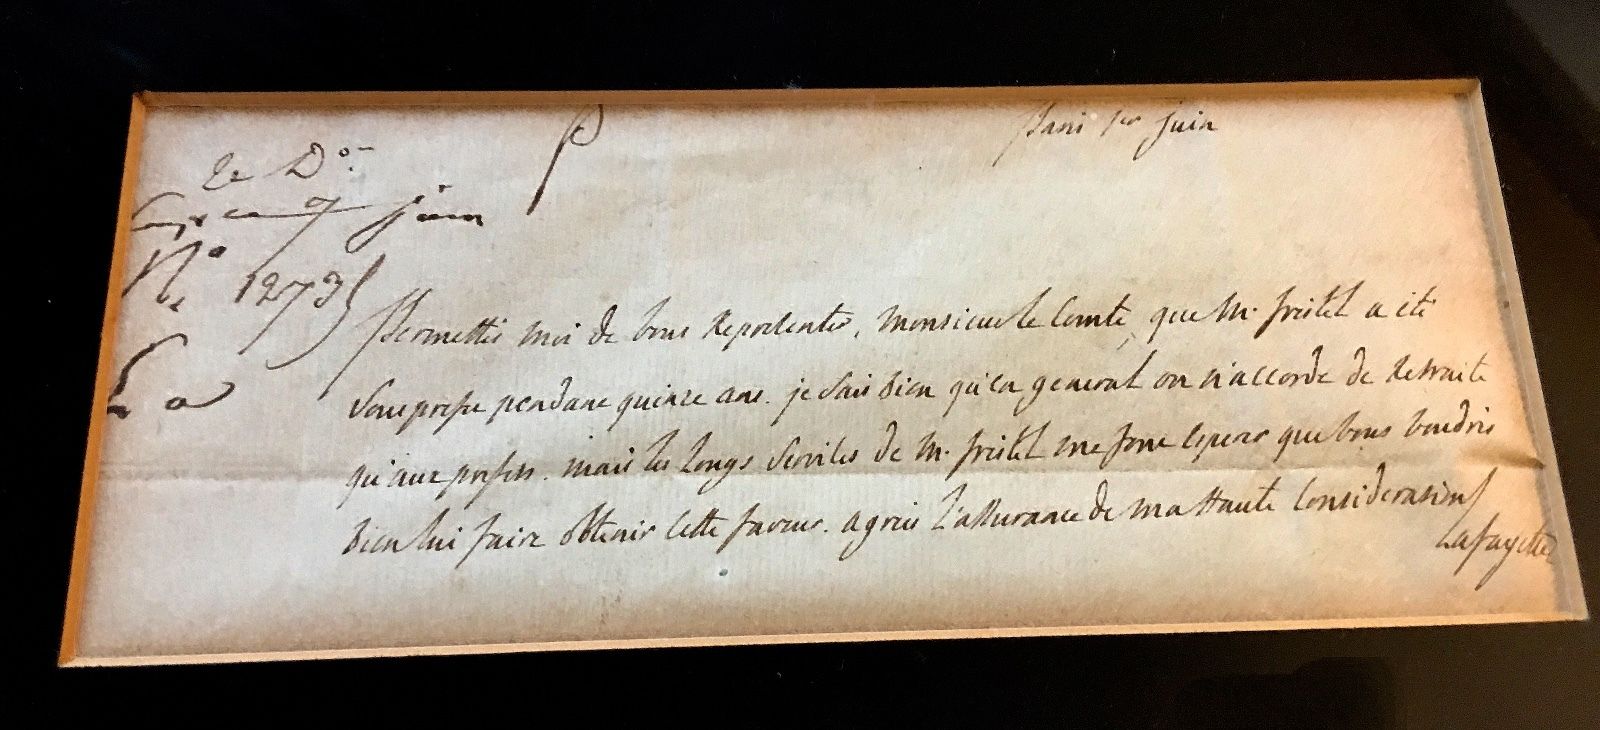 P
Paris 1er juin
Le D.on
juin
N.o 1273
Permettés moi de vous representer, monsieur le Comte, que M. freitel a été
sous prefet pendant quinze ans. je sais bien qu'en general on n'accorde de Retraite
qu'aux prefets. mais les longs services de M. freitel me font esperer que vous voudrés
bien lui faire obtenir cette faveur. agréés l'assurance de ma Haute Consideration
Lafayette